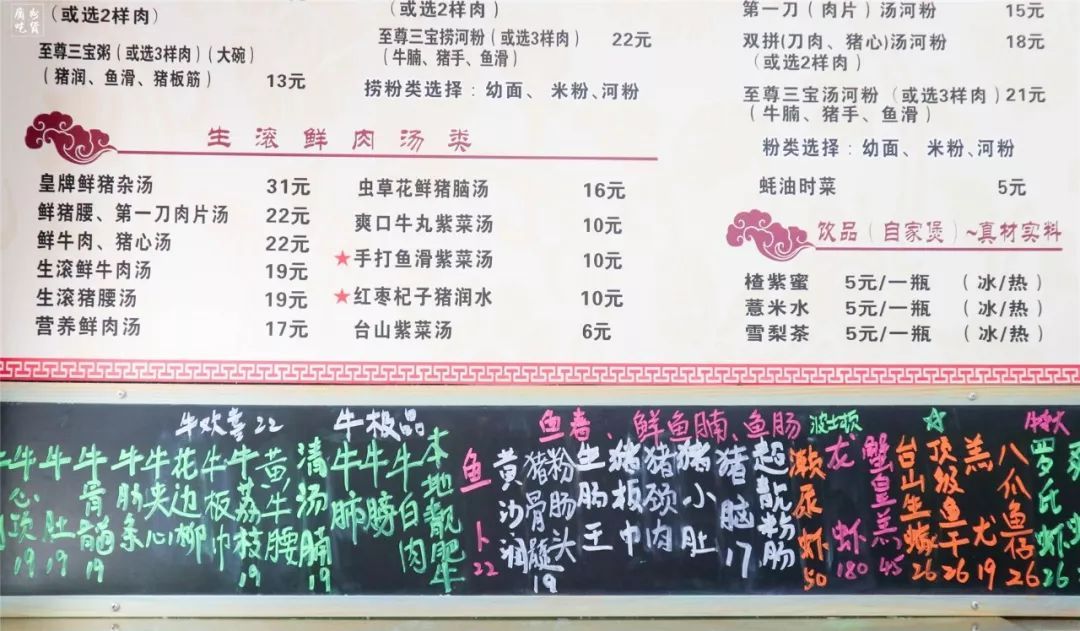 (或选2样肉)
至尊三宝粥(或选3样肉)(大碗)
(猪润、鱼滑、猪板筋) 13元
(或选2样肉)
至尊三宝捞河粉(或选3样肉) 22元
(牛腩、猪手、鱼滑)
捞粉类选择：幼面、 米粉、河粉
第一刀(肉片)汤河粉 15元
双拼(刀肉、猪心)汤河粉 18元
(或选2样肉)
至尊三宝汤河粉 (或选3样肉) 21元
(牛腩、猪手、鱼滑)
粉类选择：幼面、 米粉、河粉
蚝油时菜 5元
生滚鲜肉汤类
皇牌鲜猪杂汤 31元
鲜猪腰、第一刀肉片汤 22元
鲜牛肉、猪心汤 22元
生滚鲜牛肉汤 19元
生滚猪腰汤 19元
营养鲜肉汤 17元
虫草花鲜猪脑汤 16元
爽口牛丸紫菜汤 10元
★手打鱼滑紫菜汤 10元
★红枣杞子猪润水 10元
台山紫菜汤 6元
饮品(自家煲)~真材实料
楂紫蜜 5元/一瓶 (冰/热)
薏米水 5元/一瓶 (冰/热)
雪梨茶 5元/一瓶 (冰/热)
牛欢喜22
牛极品
鱼春、鲜鱼腩、鱼肠
波士顿
牛心顶 19
牛肚 19
牛骨髓 19
牛肋条
牛夹心
花边柳
牛板巾
牛荔枝 19
黄牛腰
清汤腩 19
牛肺
牛膀
牛白肉
本地靓肥牛
鱼卜 22
黄沙润
猪骨髓 19
粉肠头
生肠王
猪板巾
猪颈肉
猪小肚
猪脑 17
超靓粉肠
濑尿虾 50
龙虾 180
蟹皇羔 45
台山生蚝 26
顶级鱼干 26
羔尤 19
八爪鱼仔 26
罗氏虾 26